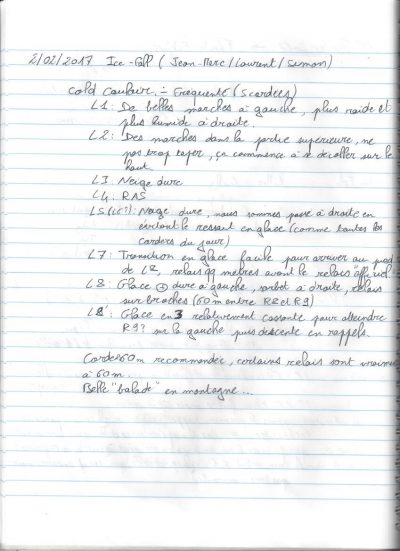 2/02/2017 Ice-Fall (Jean-Marc/Laurent/Simon)
Cold Couloir :- Fréquenté (5 cordées)
L1: De belles marches à gauche, plus raide et
plus humide à droite.
L2: Des marches dans la partie supérieure, ne
pas trop taper, ça commence à se décoller sur le
haut.
L3: Neige dure
L4: RAS
L5(L6?): Neige dure, nous sommes passé à droite en
évitant le ressaut en glace (comme toutes les
cordées du jour)
L7: Transition en glace facile pour arriver au pied
de L8, relais qq mètres avant le relais "officiel"
L8: Glace + dure à gauche, sorbet à droite, relais
sur broches (60m entre R8 et R9)
Glace en 3 relativement cassante pour atteindre
R9? sur la gauche puis descente en rappels.
Corde 60m recommandée, certains relais sont vraiment
à 60m.
Belle "balade" en montagne...